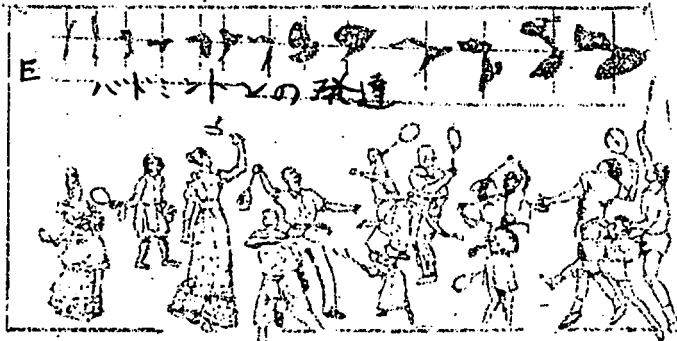 E
バドミントンの発達